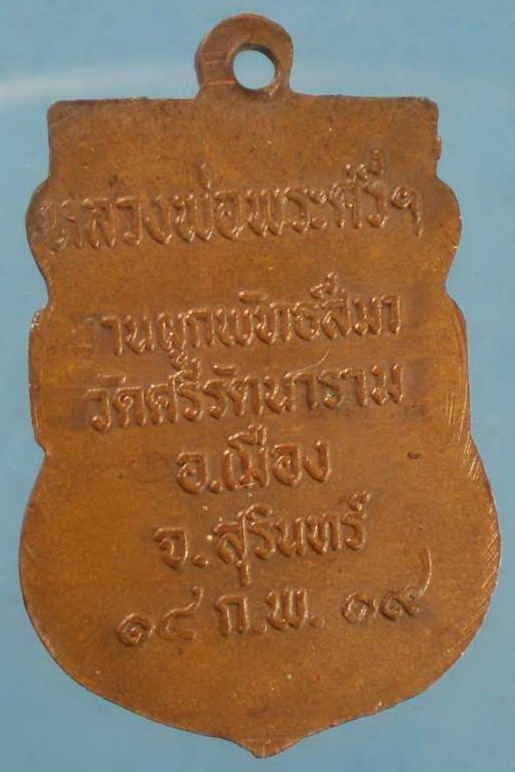 หลวงพ่อพระศรีฯ
งานผูกพัทธสีมา
วัดศรีรัตนาราม
อ.เมือง
จ.สุรินทร์
๑๔ ก.พ. ๑๙